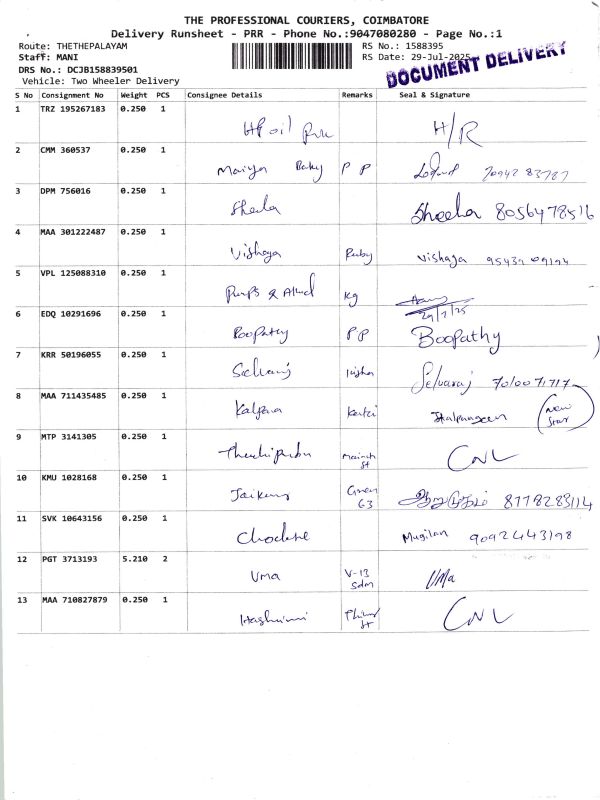 THE PROFESSIONAL COURIERS, COIMBATORE
Delivery Runsheet - PRR - Phone No.:9047080280 - Page No.:1
Route: THETHEPALAYAM RS No.: 1588395
Staff: MANI RS Date: 29-Jul-2025
DRS No.: DCJB158839501
Vehicle: Two Wheeler Delivery
DOCUMENT DELIVERY
S No Consignment No Weight PCS Consignee Details Remarks Seal & Signature
1 TRZ 195267183 0.250 1
HP oil H/R
2 CMM 360537 0.250 1
Maiya Baby P P 70942 83787
3 DPM 756016 0.250 1
Sheela Sheeba 8056478516
4 MAA 301222487 0.250 1
Vishaga Ruby Vishaga
5 VPL 125088310 0.250 1
Pumps & Allied Kg
29/7/25
6 EDQ 10291696 0.250 1
Boopathy P P Boopathy
7 KRR 50196055 0.250 1
Selvaraj Selvaraj 7010071717
8 MAA 711435485 0.250 1
Kalpana (New Star)
9 MTP 3141305 0.250 1
St CNL
10 KMU 1028168 0.250 1
Jaikumar Green G3 ஆறுமுகம் 8778283114
11 SVK 10643156 0.250 1
Mugilan 9092443198
12 PGT 3713193 5.210 2
Uma V-13 Sdm Uma
13 MAA 710827879 0.250 1
St CNL